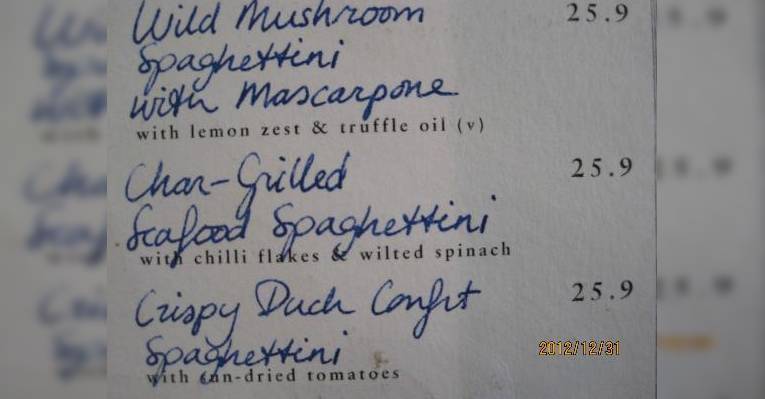 Wild Mushroom 25.9
Spaghettini
with Mascarpone
with lemon zest & truffle oil (v)
Char-Grilled 25.9
Seafood Spaghettini
with chilli flakes & wilted spinach
Crispy Duck Confit 25.9
Spaghettini
with sun-dried tomatoes
2012/12/31